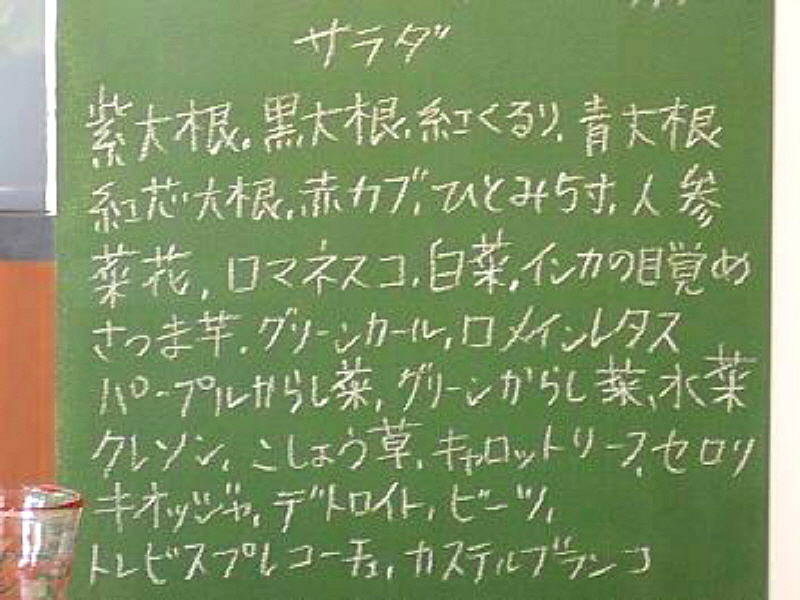 サラダ
紫大根.黒大根.紅くるり.青大根
紅芯大根.赤カブ.ひとみ5寸.人参
菜花.ロマネスコ.白菜.インカの目覚め
さつま芋.グリーンカール.ロメインレタス
パープルからし菜.グリーンからし菜、水菜
クレソン.こしょう草.キャロットリーフ.セロリ
キオッジャ.デトロイト.ビーツ.
トレビスプレコーチェ.カステルブランコ